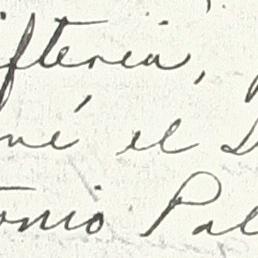 ifteria,
né el
onio Pal